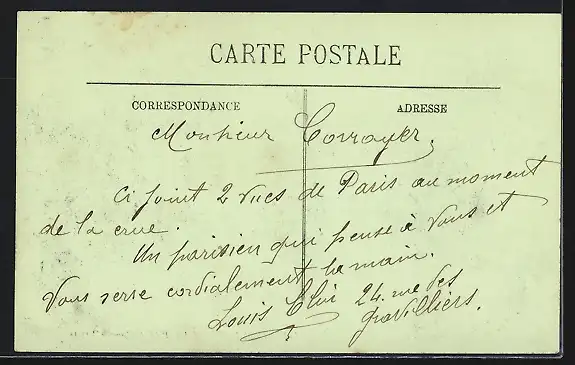 CARTE POSTALE
CORRESPONDANCE
ADRESSE
Monsieur Corroyer,
Ci joint 2 vues de Paris au moment
de la crue.
Un parisien qui pense à vous et
Vous serre cordialement la main.
Louis 24. rue des
gravilliers.